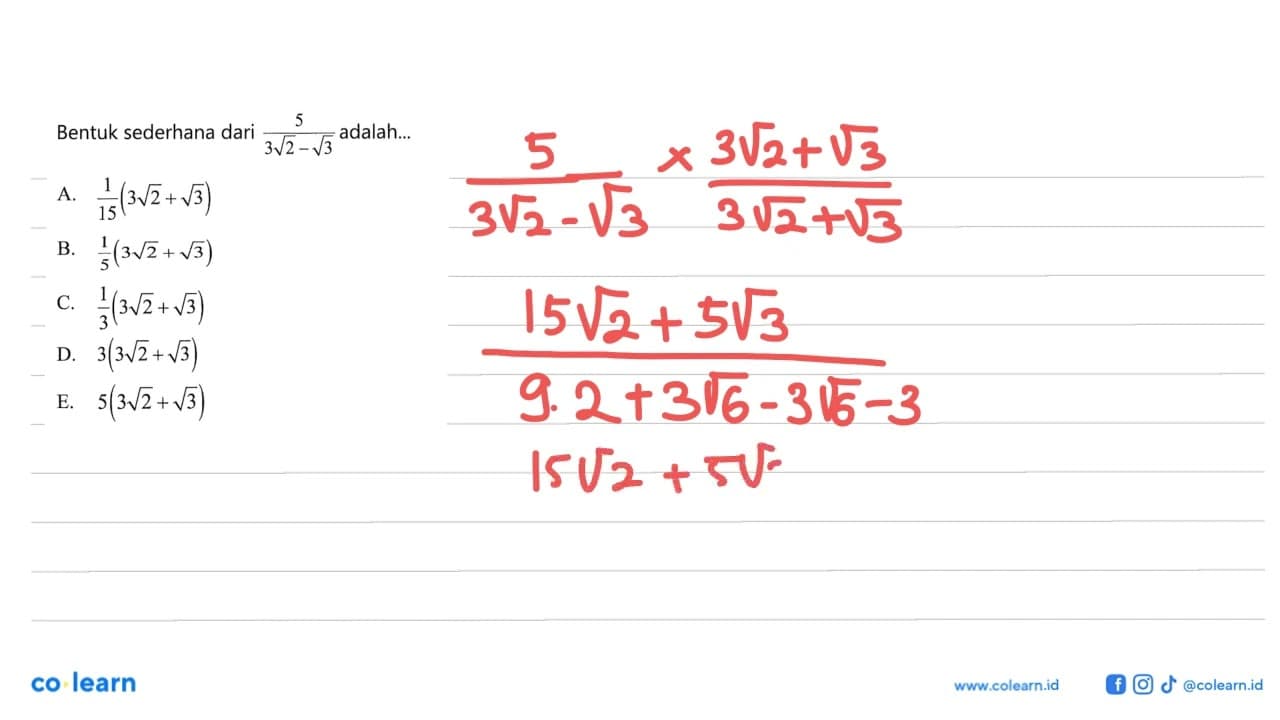 Bentuk sederhana dari 5/(3√2 − √3) adalah...
A. 1/15(3√2 + √3)
B. 1/5(3√2 + √3)
C. 1/3(3√2 + √3)
D. 3(3√2 + √3)
E. 5(3√2 + √3)
5/(3√2 - √3) × (3√2 + √3)/(3√2 + √3)
15√2 + 5√3
9.2 + 3√6 - 3√6 - 3
15√2 + 5√
co learn
www.colearn.id
@colearn.id